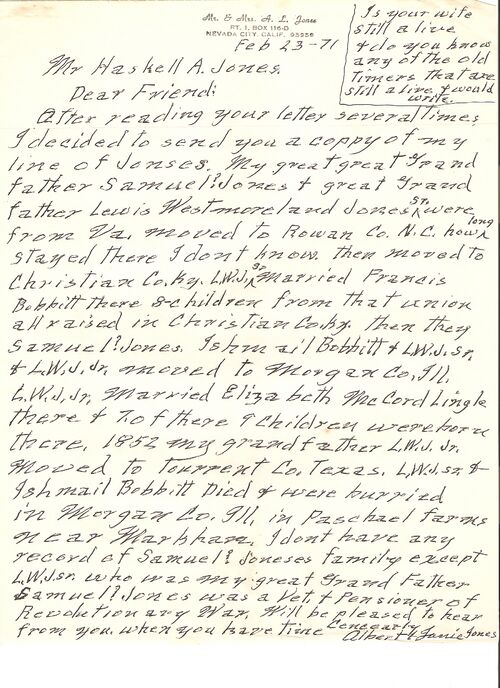 Mr. & Mrs. A. L. Jones
RT. 1, BOX 116-D
NEVADA CITY, CALIF. 95959
Feb 23-71
Is your wife
still alive
& do you know
any of the old
timers that are
still alive & would
write.
Mr Haskell A. Jones.
Dear Friend:
After reading your letter several times
I decided to send you a coppy of my
line of Jonses. My great great Grand
father Samuel? Jones & great Grand
father Lewis Westmoreland Jones Sr. were
from Va. moved to Rowan Co. N.C. how long
stayed there I dont know. then moved to
Christian Co. Ky. L.W.J. Sr Married Francis
Bobbitt there 8 children from that union
all raised in Christian Co. Ky. then they
Samuel? Jones. Ishmail Bobbitt & L.W.J. Sr.
& L.W.J. Jr. moved to Morgan Co. Ill.
L.W.J. Jr. Married Elizabeth McCord Lingle
there & 7. of there 9 children were born
there. 1852 my grandfather L.W.J. Jr.
Moved to Tourrent Co. Texas. L.W.J. sr. &
Ishmail Bobbitt Died & were burried
in Morgan Co. Ill. in Paschael farms
near Markham. I dont have any
record of Samuel? Joneses family except
L.W.J. sr. who was my great Grand Father
Samuel? Jones was a Vet. & Pensioner of
Revolutionary War. Will be pleased to hear
from you. when you have time Cencearly
Albert & Janie Jones